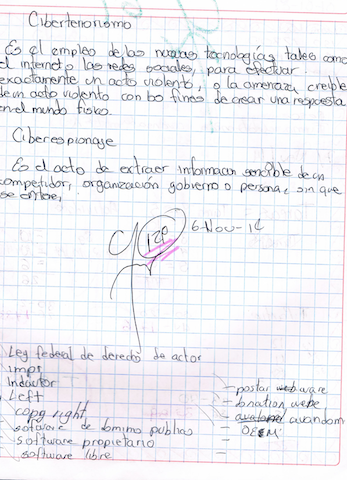 Ciberterrorismo
Es el empleo de las nuevas tecnologías tales como
el internet o las redes sociales, para efectuar
exactamente un acto violento, o la amenaza creible
de un acto violento con los fines de crear una respuesta
en el mundo fisico.
Ciberespionaje
Es el acto de extraer informacion sencible de un
competidor, organización gobierno o persona, sin que
se entere,
120
6-Nov-14
Ley federal de derecho de actor
impi
Indautor
Left
copy right
software de dominio publico
software propietario
software libre
- postar ware
- donation ware
- avandom
- OEM